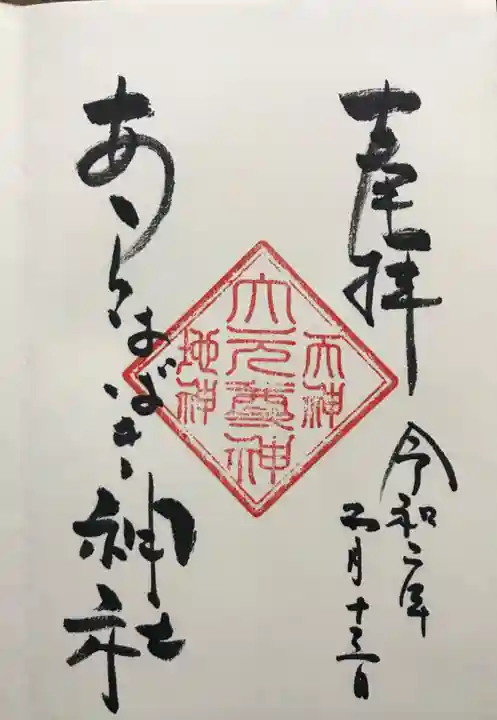 奉拝
令和二年
五月十三日
天神
大元尊神
地神
あらはばき神社